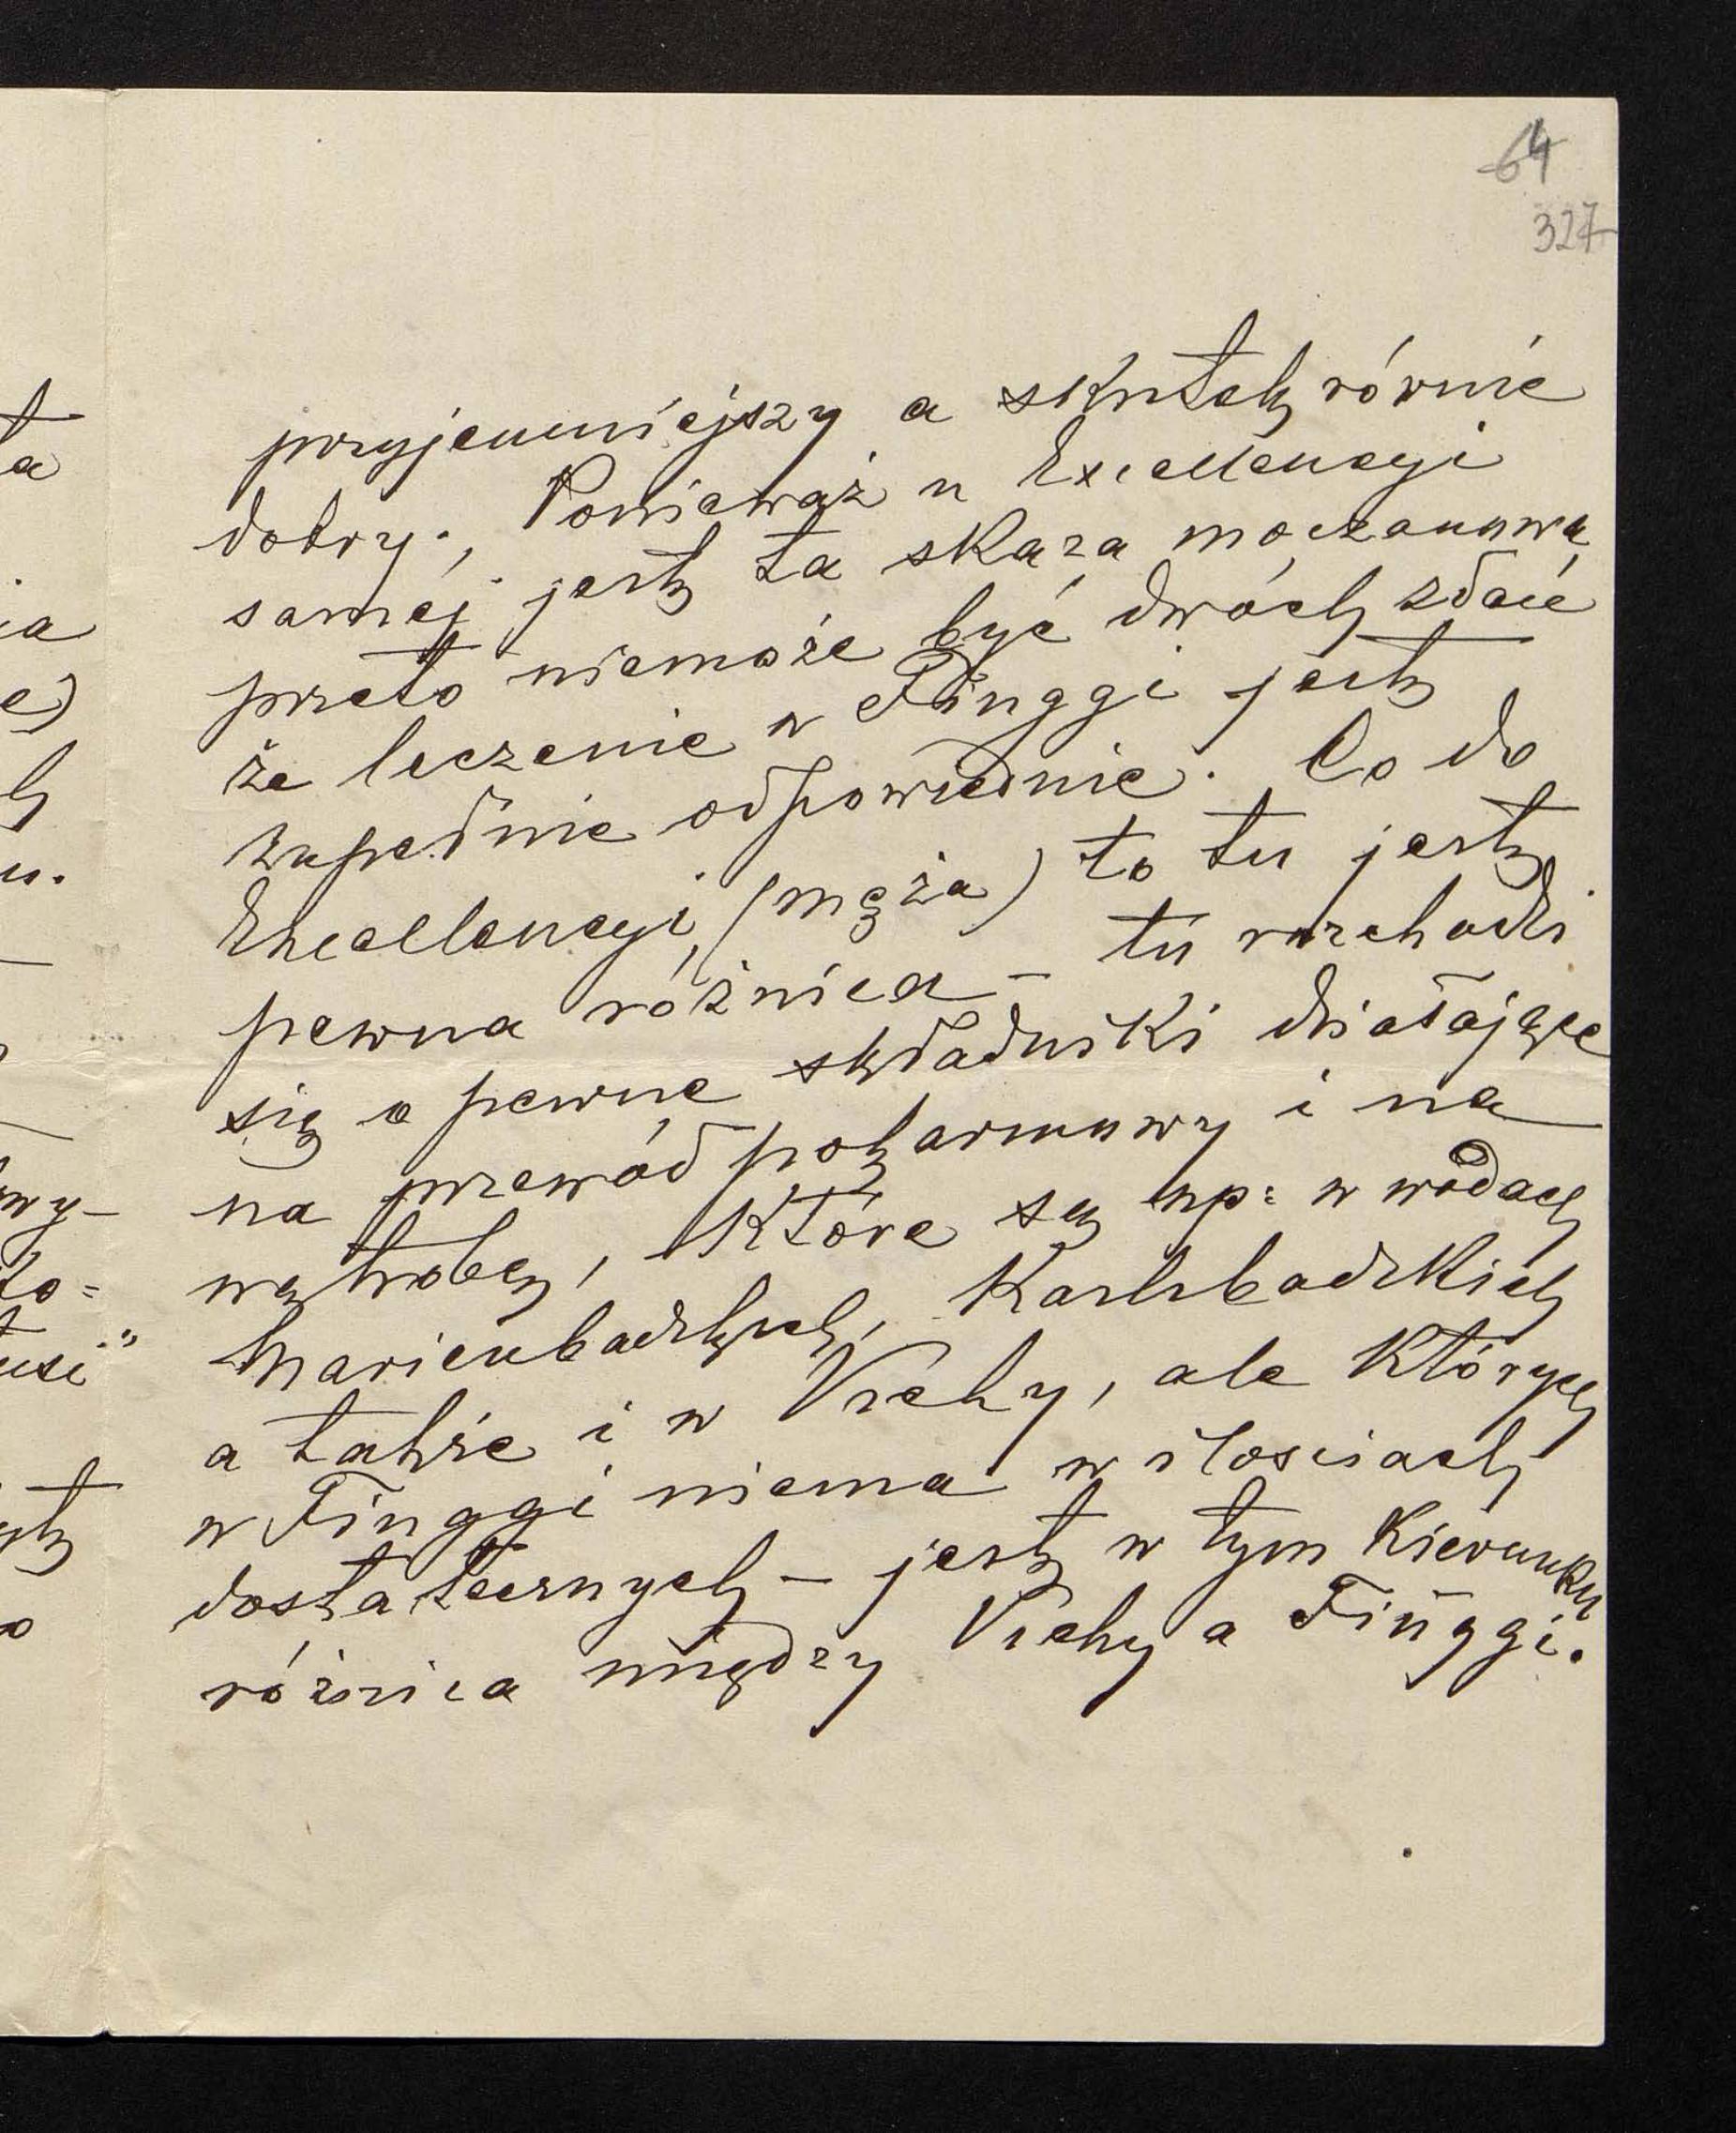 64
327
przyjemniejszy a skutek równie
dobry., Ponieważ u Excellencyi
saméj jest ta skaza moczanowa
przeto niemoże być dwóch zdań
że leczenie w Finggi jest
zupełnie odpowiednie. Co do
Excellencyi, (męża) to tu jest
pewna różnica – tu rozchodzi
się o pewne składniki działające
na przewód pokarmowy i na
wątrobę, które są np: w wodach
Marienbadzkich, Karlsbadzkich
a także i w Vichy, ale których
w Finggi niema w ilosciach
dostatecznych – jest w tym kierunku
różnica między Vichy a Finggi.
ta
a
ia
e)
u.
wy–
to=
usi"